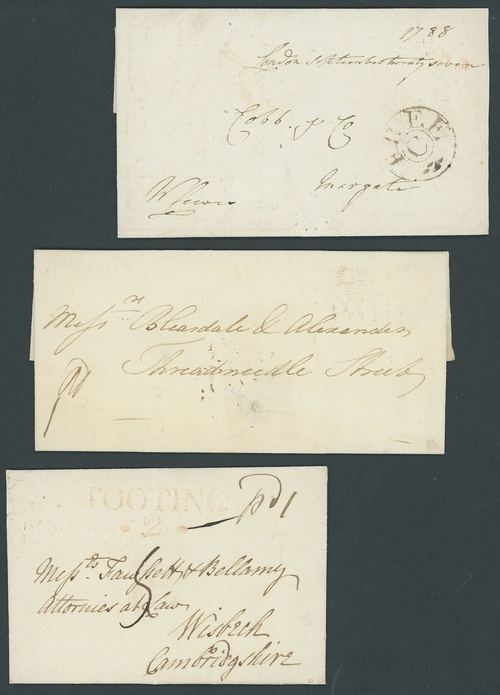 1788
London September twenty seven
Cobb & Co
FREE
C
Margate
W Lewis
Messrs Bleasdale & Alexander
Threadneedle Street
pd
TOOTING
2
pd 1
Messrs Faussett & Bellamy
Attornies at Law
5
Wisbech
Cambridgshire